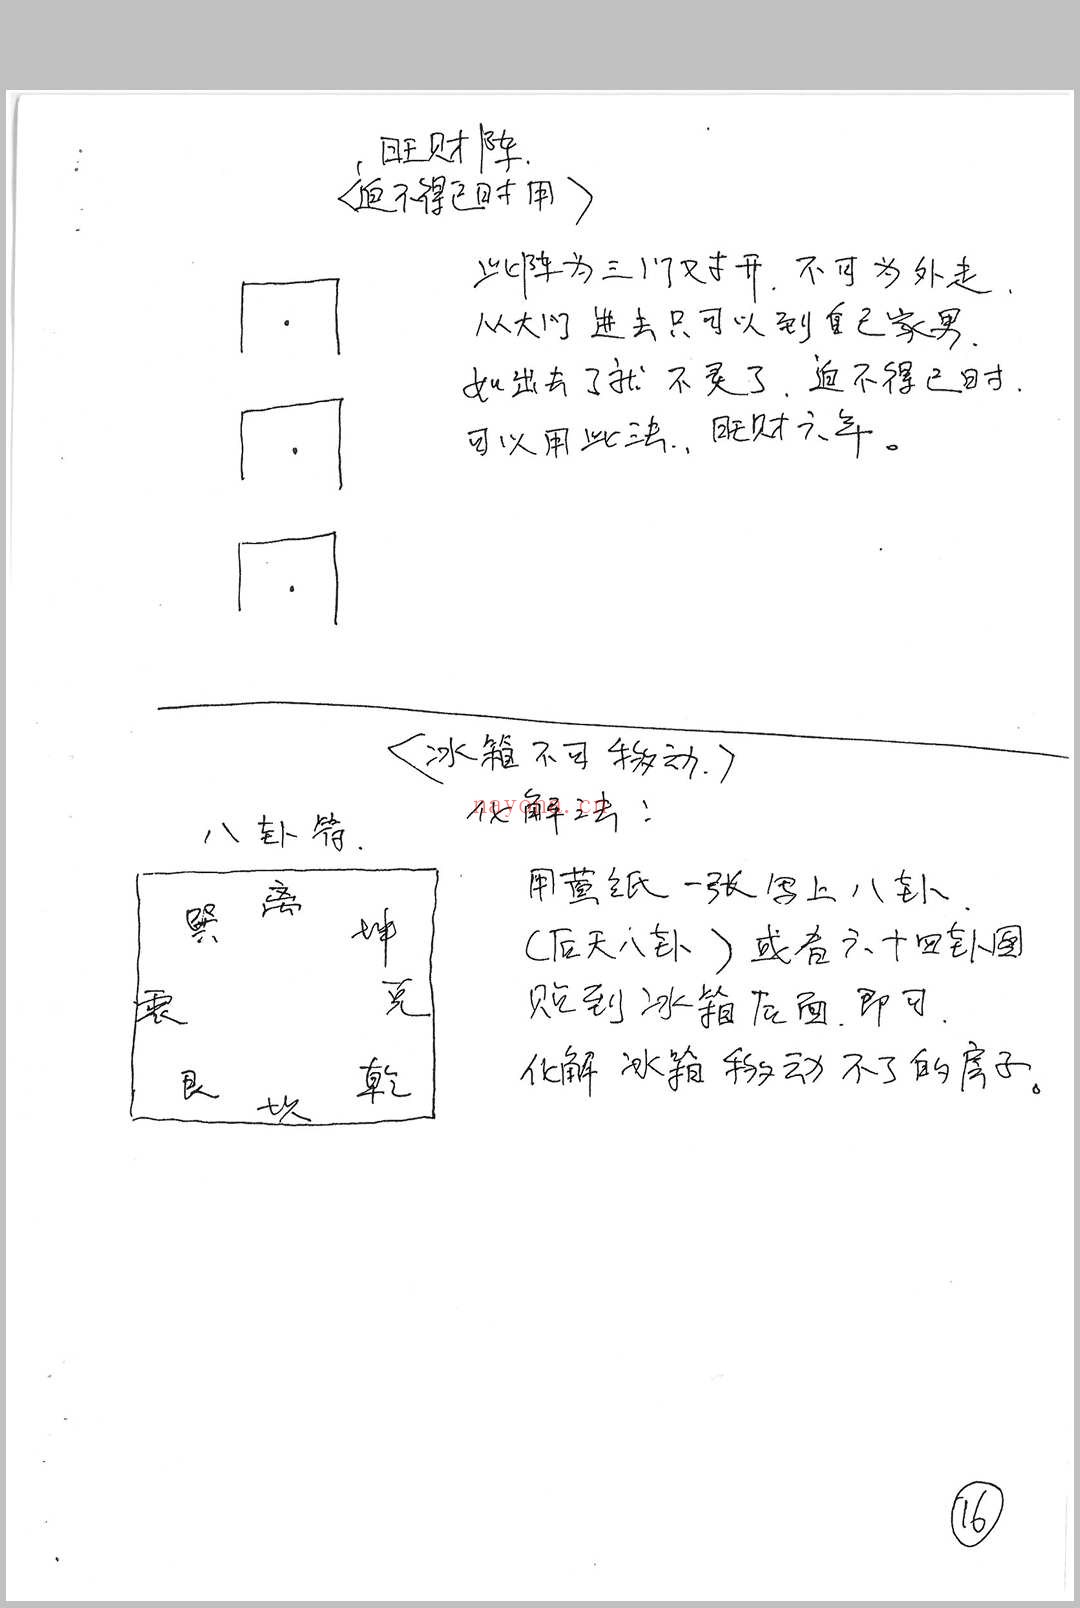 旺财阵.
<迫不得已时用>
此阵为三门对开.不可为外走.
从大门进去只可以到自己家男.
如出去了就不灵了.迫不得已时.
可以用此法.,旺财六年。
<冰箱不可移动.>
化解法:
nayona.cn
八卦符.
离
巽
坤
震
兑
艮
乾
坎
用黄纸一张写上八卦.
(后天八卦)或者六十四卦图
贴到冰箱后面.即可.
化解冰箱移动不了的房子。
16